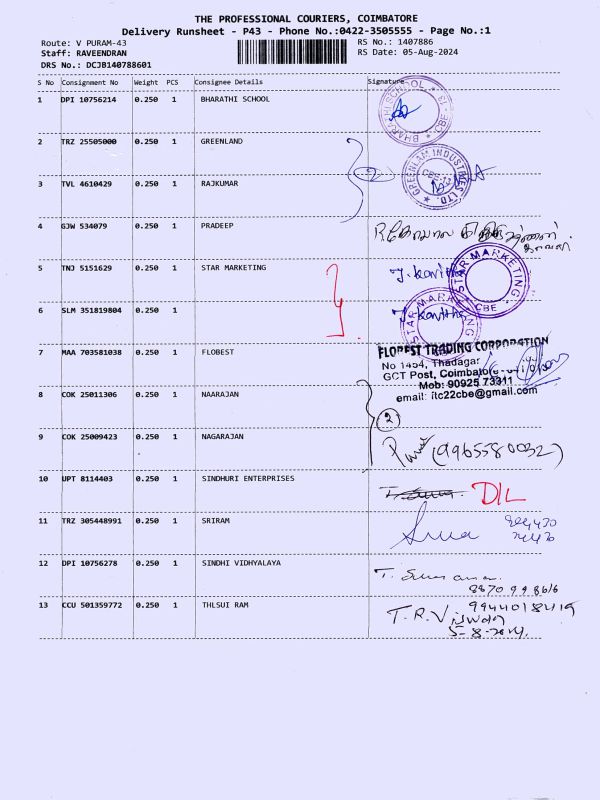 THE PROFESSIONAL COURIERS, COIMBATORE
Delivery Runsheet - P43 - Phone No.:0422-3505555 - Page No.:1
Route: V PURAM-43 RS No.: 1407886
Staff: RAVEENDRAN RS Date: 05-Aug-2024
DRS No.: DCJB140788601
S No Consignment No Weight PCS Consignee Details Signature
1 DPI 10756214 0.250 1 BHARATHI SCHOOL
BHARATHI SCHOOL CBE
2 TRZ 25505000 0.250 1 GREENLAND
2 GREENLAM INDUSTRIES LTD.
3 TVL 4610429 0.250 1 RAJKUMAR
4 GJW 534079 0.250 1 PRADEEP
5 TNJ 5151629 0.250 1 STAR MARKETING
J. Kavitha STAR MARKETING CBE
6 SLM 351819804 0.250 1
J Kavitha STAR MARKETING
7 MAA 703581038 0.250 1 FLOBEST
FLOBEST TRADING CORPORATION
No 1454, Thadagar
GCT Post, Coimbatore
Mob: 90925 73311
email: ftc22cbe@gmail.com
8 COK 25011306 0.250 1 NAARAJAN
2
9 COK 25009423 0.250 1 NAGARAJAN
(9965580032)
10 UPT 8114403 0.250 1 SINDHURI ENTERPRISES
D/L
11 TRZ 305448991 0.250 1 SRIRAM
12 DPI 10756278 0.250 1 SINDHI VIDHYALAYA
8870998616
13 CCU 501359772 0.250 1 THLSUI RAM
T.R.V